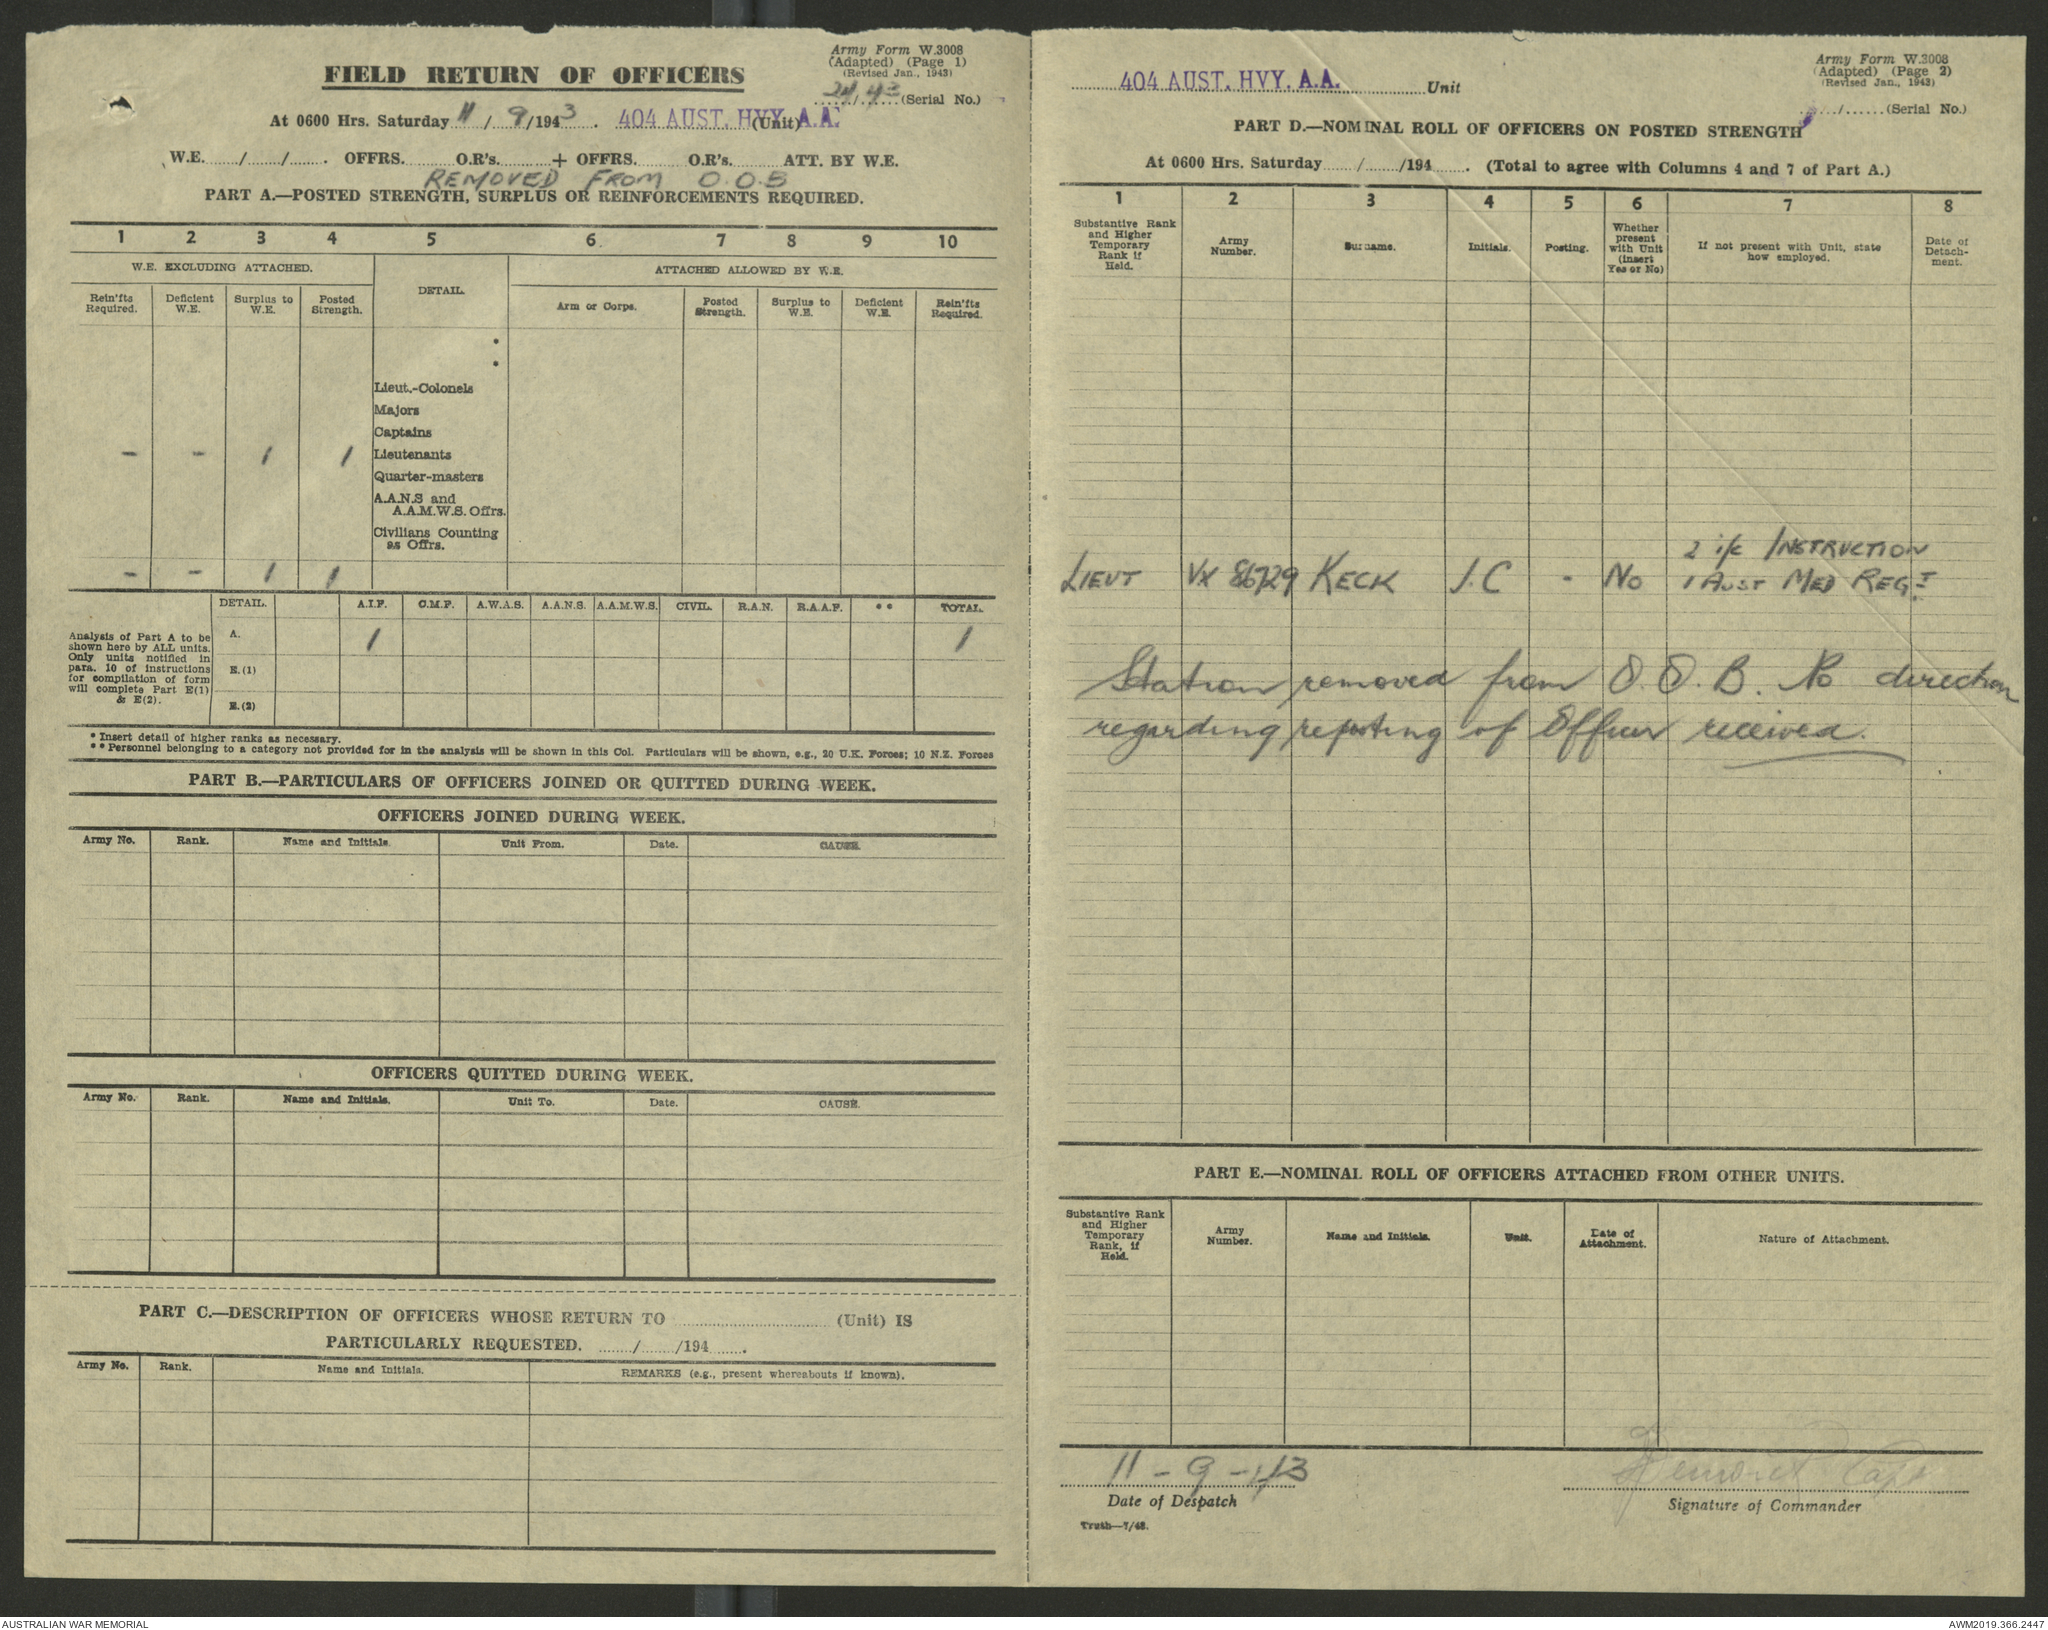 Army Form W.3008
(Adapted) (Page 1)
(Revised Jan., 1943)
FIELD RETURN OF OFFICERS
24/43 (Serial No.)
At 0600 Hrs. Saturday 11/9/1943. 404 AUST. HVY. A.A. (Unit)
W.E. ....../....../...... OFFRS. ...... O.R's. ...... + OFFRS. ...... O.R's. ...... ATT. BY W.E.
REMOVED FROM O.O.B
PART A.—POSTED STRENGTH, SURPLUS OR REINFORCEMENTS REQUIRED.
1 2 3 4 5 6 7 8 9 10
W.E. EXCLUDING ATTACHED. DETAIL. ATTACHED ALLOWED BY W.E.
Rein'fts Required. Deficient W.E. Surplus to W.E. Posted Strength. Arm or Corps. Posted Strength. Surplus to W.E. Deficient W.E. Rein'fts Required.
*
*
Lieut.-Colonels
Majors
Captains
– – 1 1 Lieutenants
Quarter-masters
A.A.N.S and
A.A.M.W.S. Offrs.
Civilians Counting
as Offrs.
– – 1 1
DETAIL. A.I.F. C.M.F. A.W.A.S. A.A.N.S. A.A.M.W.S. CIVIL. R.A.N. R.A.A.F. ** TOTAL.
Analysis of Part A to be
shown here by ALL units.
Only units notified in
para. 10 of instructions
for compilation of form
will complete Part E(1)
& E(2).
A. 1 1
E.(1)
E.(2)
* Insert detail of higher ranks as necessary.
** Personnel belonging to a category not provided for in the analysis will be shown in this Col. Particulars will be shown, e.g., 20 U.K. Forces; 10 N.Z. Forces
PART B.—PARTICULARS OF OFFICERS JOINED OR QUITTED DURING WEEK.
OFFICERS JOINED DURING WEEK.
Army No. Rank. Name and Initials. Unit From. Date. CAUSE.
OFFICERS QUITTED DURING WEEK.
Army No. Rank. Name and Initials. Unit To. Date. CAUSE.
PART C.—DESCRIPTION OF OFFICERS WHOSE RETURN TO ............ (Unit) IS
PARTICULARLY REQUESTED. ....../....../194.......
Army No. Rank. Name and Initials. REMARKS (e.g., present whereabouts if known).
Army Form W.3008
(Adapted) (Page 2)
(Revised Jan., 1943)
404 AUST. HVY. A.A. Unit
....../...... (Serial No.)
PART D.—NOMINAL ROLL OF OFFICERS ON POSTED STRENGTH
At 0600 Hrs. Saturday ....../....../194....... (Total to agree with Columns 4 and 7 of Part A.)
1 2 3 4 5 6 7 8
Substantive Rank and Higher Temporary Rank if Held. Army Number. Surname. Initials. Posting. Whether present with Unit (insert Yes or No) If not present with Unit, state how employed. Date of Detachment.
2 i/c INSTRUCTION
LIEUT VX 86729 KECK J.C - No 1 AUST MED REGT
Station removed from O.O.B. No direction
regarding reporting of Officer received.
PART E.—NOMINAL ROLL OF OFFICERS ATTACHED FROM OTHER UNITS.
Substantive Rank and Higher Temporary Rank, if Held. Army Number. Name and Initials. Unit. Date of Attachment. Nature of Attachment.
11-9-43
Date of Despatch
Signature of Commander
Truth—7/43.
AUSTRALIAN WAR MEMORIAL
AWM2019.366.2447